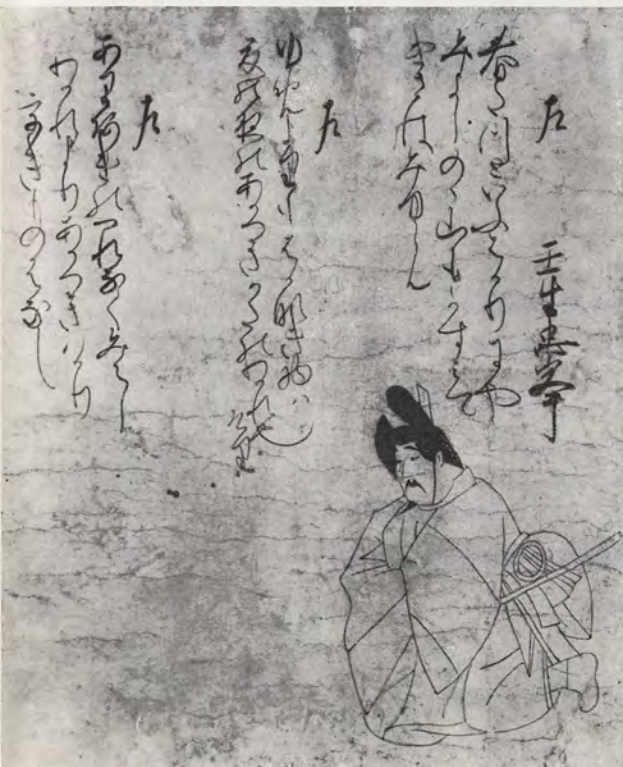 左
壬生忠岑
春たつといふはかりにや
みよしのゝ山もかすみて
けさはみゆらん
左
ゆめよりもはかなきものは
夏の夜のあかつきかたのわかれなりけり
左
ありあけのつれなくみえし
わかれよりあかつきはかり
うきものはなし